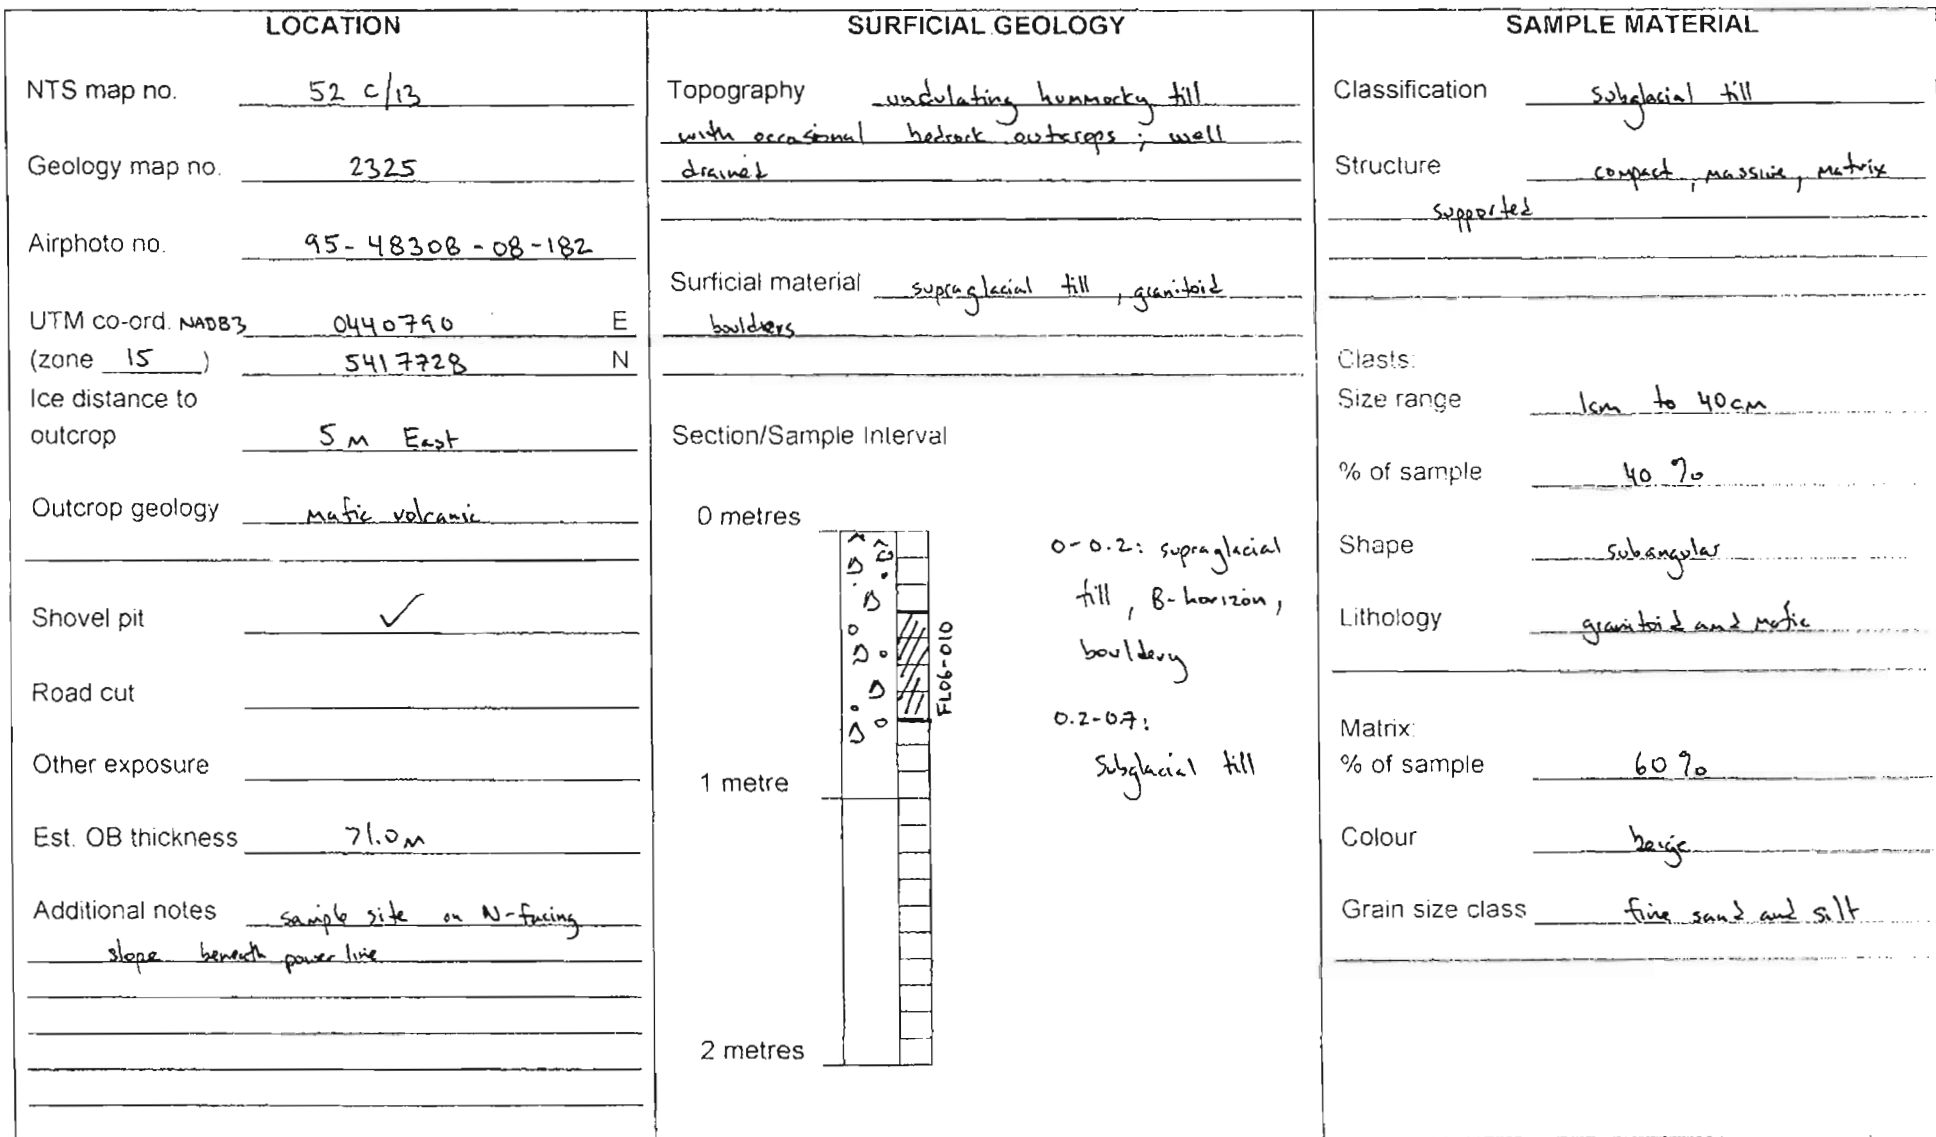 LOCATION
NTS map no. 52 C/13
Geology map no. 2325
Airphoto no. 95-48308-08-182
UTM co-ord. NAD83 0440790 E
(zone 15) 5417728 N
Ice distance to
outcrop 5 m East
Outcrop geology mafic volcanic
Shovel pit ✓
Road cut
Other exposure
Est. OB thickness >1.0m
Additional notes sample site on N-facing
slope beneath power line
SURFICIAL GEOLOGY
Topography undulating hummocky till
with occasional bedrock outcrops; well
drained
Surficial material supraglacial till, granitoid
boulders
Section/Sample Interval
0 metres
1 metre
2 metres
FL06-010
0-0.2: supraglacial
till, B-horizon,
bouldery
0.2-0.7:
Subglacial till
SAMPLE MATERIAL
Classification subglacial till
Structure compact, massive, matrix
supported
Clasts:
Size range 1cm to 40cm
% of sample 40%
Shape subangular
Lithology granitoid and mafic
Matrix:
% of sample 60%
Colour beige
Grain size class fine sand and silt